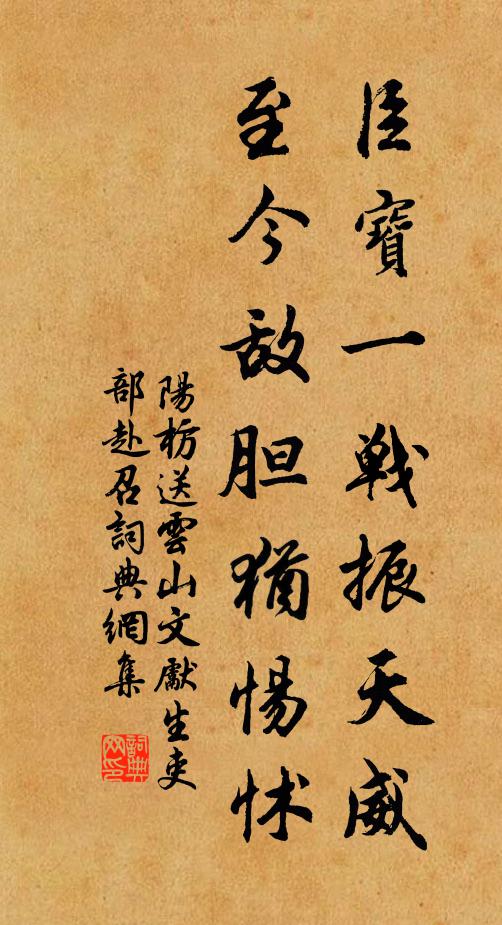 臣寶一戰振天威
至今敌胆猶惕怵
陽枋送雲山文獻生吏
部赴召詞典網集
詞典
网印